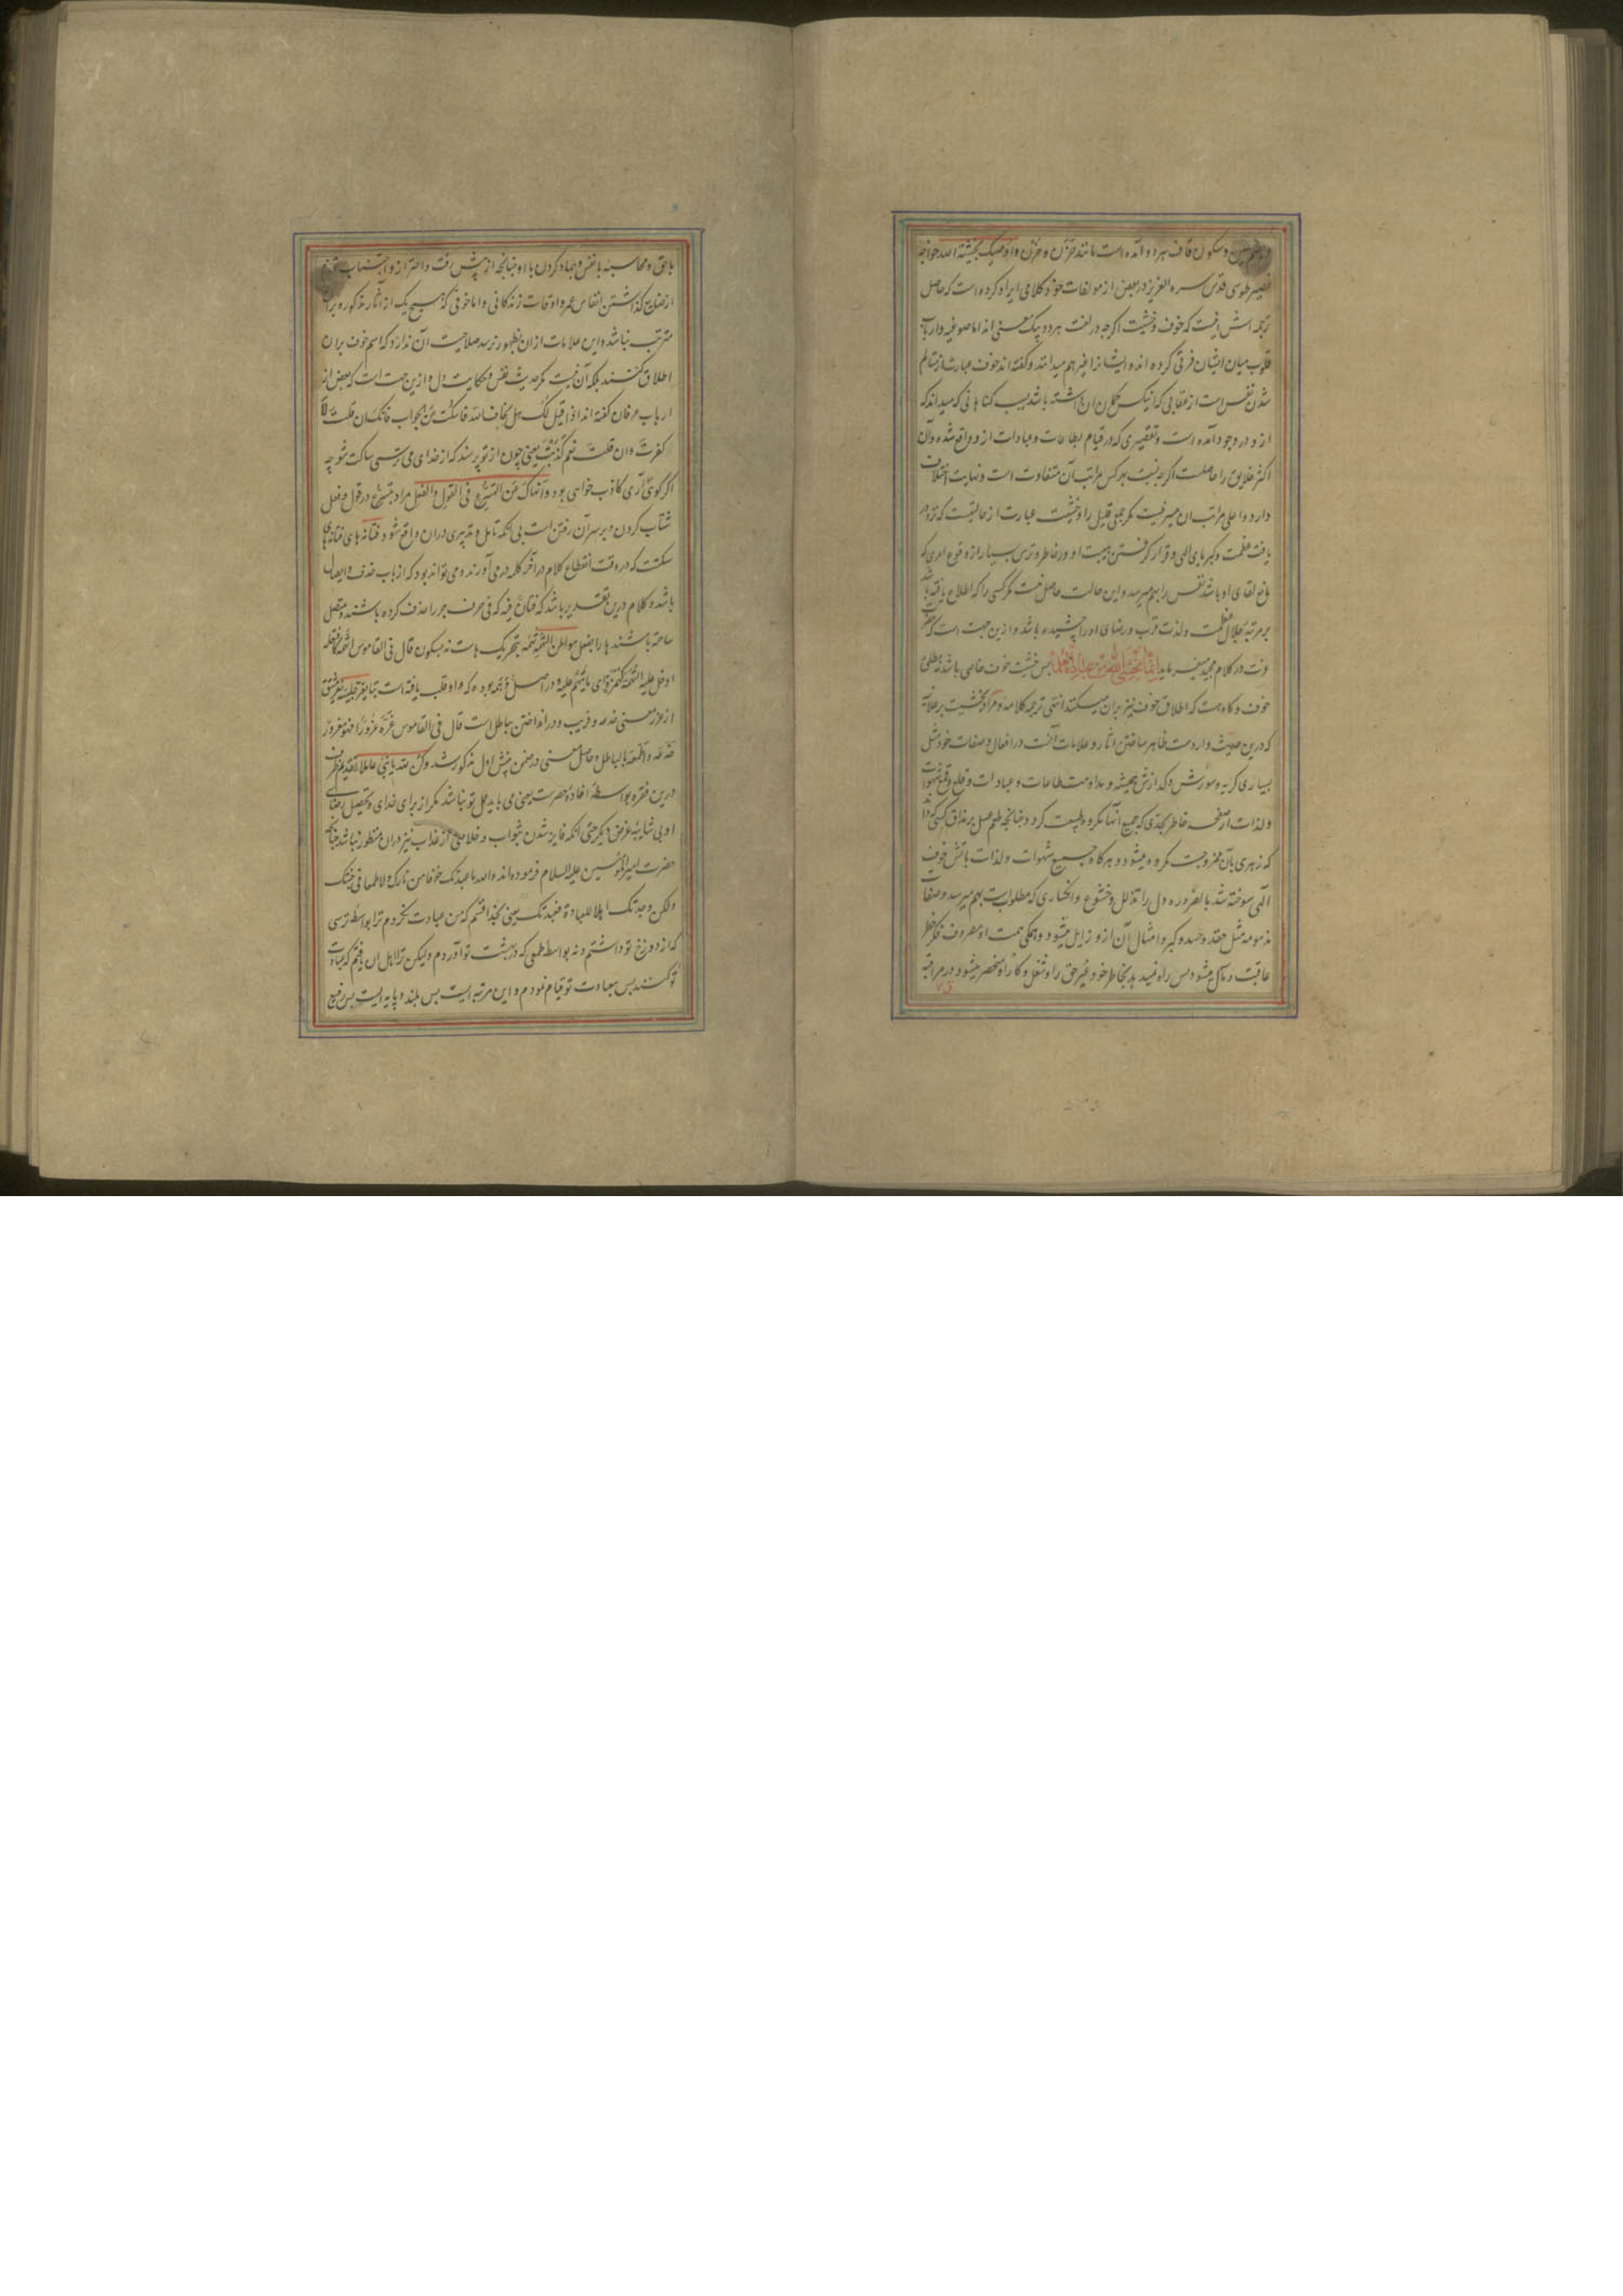 وسکون قاف هر دو آمده است مانند حَزَن و حُزْن و اوصیک بخشیة الله خواجه
نصیر طوسی قدس سره العزیز در بعض از مولفات خود کلامی ایراد کرده است که حاصل
ترجمه اش اینست که خوف و خشیت اکرچه در لغت هر دو بیک معنی اند اما صوفیه و ارباب
قلوب میان ایشان فرقی کرده اند و گفته اند خوف عبارت از تالم
شدن نفس است از عقابی که باشد بسبب کناهانی که میداند که
ازو در وجود آمده است و تقصیری که در قیام بطاعات و عبادات ازو واقع شده و آن
اکثر خلایق را حاصلست اکرچه نسبت بهر کس مراتب آن متفاوت است و نهایت اختلاف
دارد و اعلی مراتب ان میسر نیست مکر جمعی قلیل را و خشیت عبارت از حالتیست که نزد
یافت عظمت و کبریای الهی و قرار کرفتن هیبت او در خاطر و ترس بسیار از وقوع امری که
مانع لقای او باشد نفس را بهم میرسد و این حالت حاصل نیست مکر کسی را که اطلاع یافته باشد
بر مرتبه جلال عظمت و لذت قرب و رضای او را چشیده باشد و ازین جهت است که حضرت
عزت در کلام مجید میفرماید انما یخشی الله من عباده العلماء پس خشیت خوف خاصی باشد نه مطلق
خوف و کاه هست که اطلاق خوف نیز بران میکنند انتهی ترجمه کلامه و مراد بخشیت بر علانیه
که درین حدیث واردست ظاهر ساختن اثار و علامات آنست در افعال و صفات خود مثل
بسیاری کریه و سوزش و کدازش همیشه و مداومت طاعات و عبادات و قلع و قمع شهوات
و لذات از صفحه خاطر بحدی که جمیع آنها مکروه طبیعت کردد چنانچه طعم عسل بر مذاق کسی که داند
که زهری بآن ممزوجست مکروه میشود و هرکاه جمیع شهوات و لذات باتش خوف
الهی سوخته شد بالضروره دل را تذلل و خشوع و انکساری که مطلوبست بهم میرسد و صفات
مذمومه مثل حقد و حسد و کبر و امثال آن ازو زایل میشود و همکی همت او مصروف فکر خطر
عاقبت و مآل میشود پس راه نمیدهد بخاطر خود غیر حق را و شغل و کار او منحصر میشود در مراقبه
باحق و محاسبه با نفس و جهاد کردن با او چنانچه از پیش رفت و احتراز و اجتناب
از ضایع کذاشتن انفاس عمر و اوقات زندکانی و اما خوفی که هیچ یک از آثار مذکوره بران
مترتب نباشد و این علامات ازان بظهور نرسد صلاحیت آن ندارد که اسم خوف بران
اطلاق کنند بلکه آن نیست مکر حدیث نفس و حکایت دل و ازین جهت است که بعض از
ارباب عرفان کفته اند اذا قیل لک هل تخاف الله فاسکت عن الجواب فانک ان قلت لا
کفرت و ان قلت نعم کذبت یعنی چون از تو پرسند که از خدای می ترسی ساکت شو چه
اکر کوئی آری کاذب خواهی بود و انهاک عن التسرع فی القول و الفعل مراد بتسرع در قول و فعل
شتاب کردن و بر سر آن رفتن است بی انکه تامل و تدبیری دران واقع شود
سکتست که در وقت انقطاع کلام در آخر کلمه در می آورند و می تواند بود که از باب حذف و ایصال
باشد و کلام درین تقدیر باشد که فتان فیه که فی حرف جر را حذف کرده باشند و متصل
ساخته باشند ها را بفعل مواطن التهمة تهمه بتحریک هاست نه بسکون قال فی القاموس
ادخل علیه التهمة کهمزة ای ما یتهم علیه و در اصل وهمه بوده که واو قلب یافته است بتا یغر جلیسه یغر مشتق
از غرر بمعنی خدعه و فریب و درانداختن بباطل است قال فی القاموس غره غرورا فهو مغرور
خدعه و اطمعه بالباطل و حاصل معنی در ضمن پیش اول مذکور شد و کن لله یا بنی عاملا تقدیم ظرف
درین فقره بواسطه افاده حصرست یعنی می باید عمل تو نباشد مکر از برای خدای و تحصیل رضای
او بی شایبه غرض دیکر حتی انکه فایز شدن بثواب و خلاصی از عذاب نیز دران منظور نباشد چنانکه
حضرت امیرالمؤمنین علیه السلام فرموده اند والله ما عبدتک خوفا من نارک ولا طمعا فی جنتک
ولکن وجدتک اهلا للعبادة فعبدتک یعنی بخدا قسم که من عبادت نکردم ترا بواسطه ترسی
که از دوزخ تو داشتم و نه بواسطه طمعی که در بهشت تو آوردم ولیکن ترا اهل ان یافتم که عبادت
تو کنند پس بعبادت تو قیام نمودم و این مرتبه ایست بس بلند و پایه ایست بس رفیع